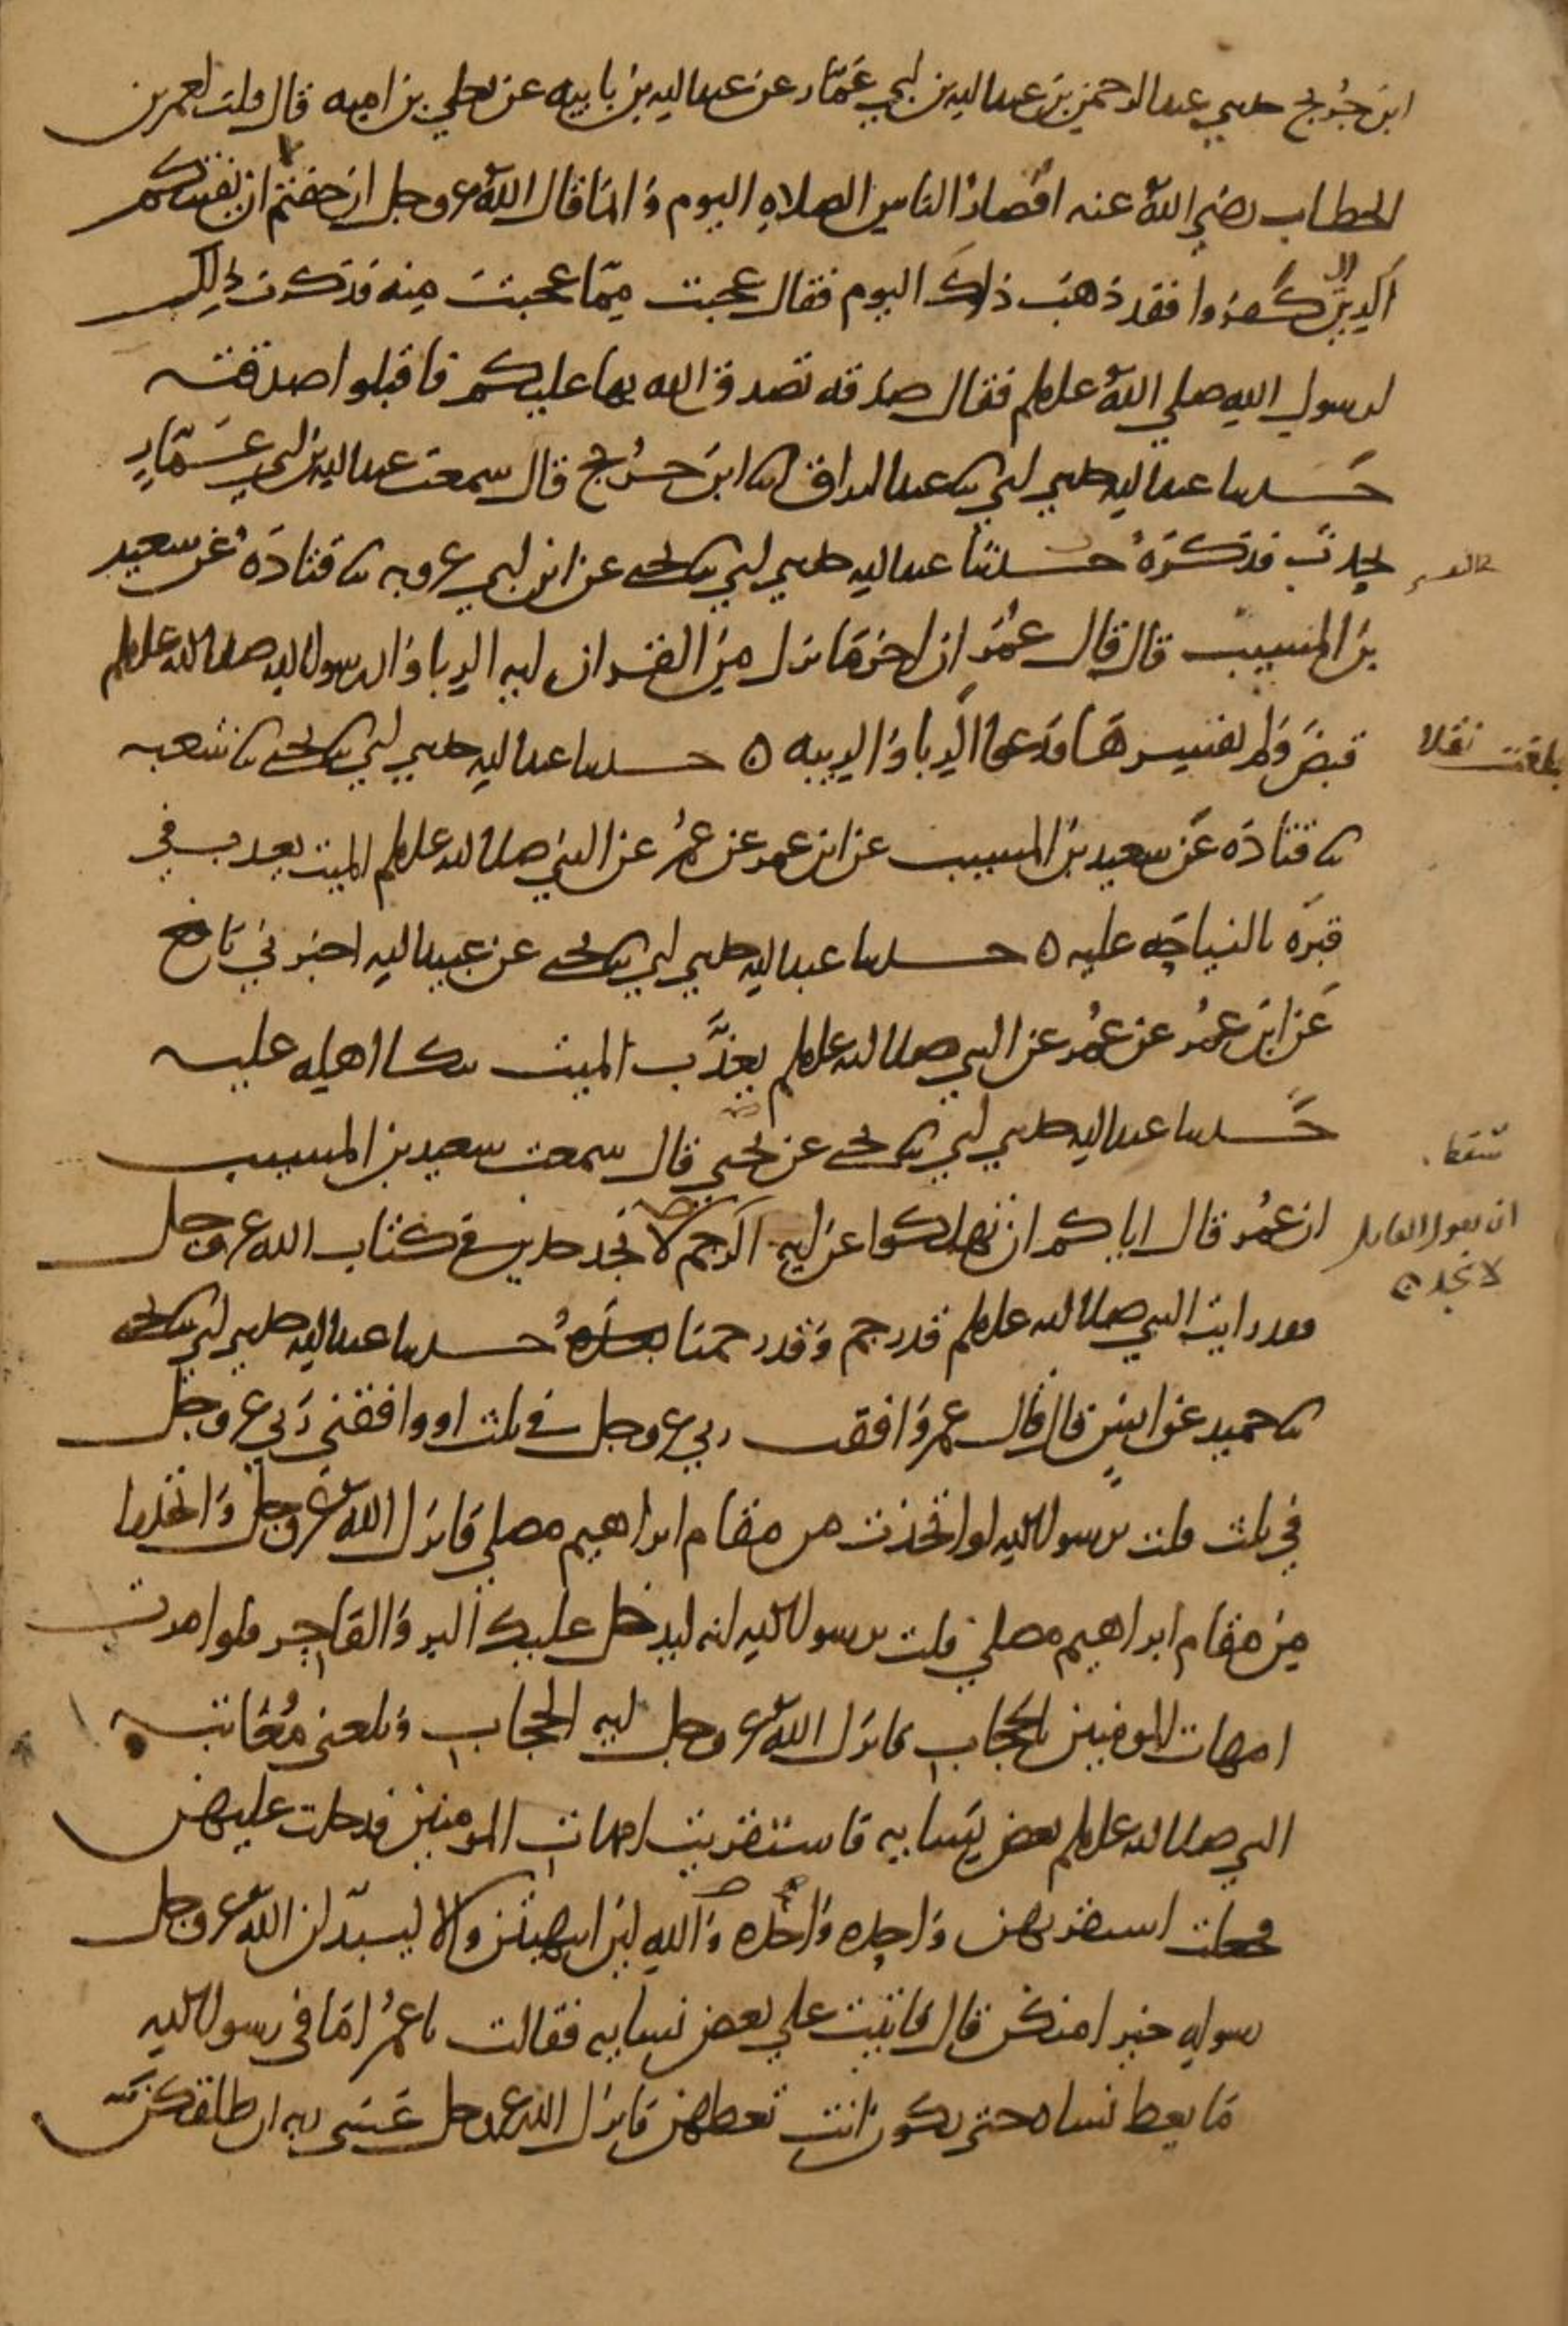 ابن جريج حدثني عبد الرحمن بن عبد الله بن ابي عمار عن عبد الله بن بابيه عن يعلي بن اميه قال قلت لعمر بن
الخطاب رضي الله عنه اقصار الناس الصلاه اليوم وانما قال الله عز وجل ان خفتم ان يفتنكم
الذين كفروا فقد ذهب ذلك اليوم فقال عجبت مما عجبت منه فذكرت ذلك
لرسول الله صلي الله عليه وسلم فقال صدقه تصدق الله بها عليكم فاقبلوا صدقته
حدثنا عبد الله حدثني ابي ثنا عبد الرزاق انا ابن جريج قال سمعت عبد الله بن ابي عمار
يحدث فذكره حدثنا عبد الله حدثني ابي ثنا يحيي عن ابن ابي عروبه ثنا قتاده عن سعيد
بن المسيب قال قال عمر ان اخر ما نزل من القران ايه الربا وان رسول الله صلي الله عليه وسلم
قبض ولم يفسرها فدعوا الربا والريبه ه حدثنا عبد الله حدثني ابي ثنا يحيي ثنا شعبه
بلغت نقلا
ثنا قتاده عن سعيد بن المسيب عن ابن عمر عن عمر عن النبي صلي الله عليه وسلم الميت يعذب في
قبره بالنياحه عليه ه حدثنا عبد الله حدثني ابي ثنا يحيي عن عبيد الله اخبرني نافع
عن ابن عمر عن عمر عن النبي صلي الله عليه وسلم يعذب الميت ببكا اهله عليه
حدثنا عبد الله حدثني ابي ثنا يحيي عن يحيي قال سمعت سعيد بن المسيب
ان عمر قال اياكم ان تهلكوا عن ايه الرجم لا نجد حدين في كتاب الله عز وجل
سقط
ان يقول القايل
لا نجد ه
فقد رايت النبي صلي الله عليه وسلم قد رجم وقد رجمنا بعده حدثنا عبد الله حدثني ابي ثنا يحيي
ثنا حميد عن انس قال قال عمر وافقت ربي عز وجل في ثلث او وافقني ربي عز وجل
في ثلث قلت يرسول الله لو اتخذت من مقام ابراهيم مصلي فانزل الله عز وجل واتخذوا
من مقام ابراهيم مصلي قلت يرسول الله انه ليدخل عليك البر والفاجر فلو امرت
امهات المومنين بالحجاب فانزل الله عز وجل ايه الحجاب وبلغني معاتبه
النبي صلي الله عليه وسلم بعض نسايه فاستقريت امهات المومنين فدخلت عليهن
فجعلت استقريهن واحده واحده والله لين انتهيتن والا ليبدلن الله عز وجل
رسوله خيرا منكن قال فاتيت علي بعض نسايه فقالت يا عمر اما في رسول الله
ما يعظ نساه حتي يكون انت تعظهن فانزل الله عز وجل عسي ربه ان طلقكن